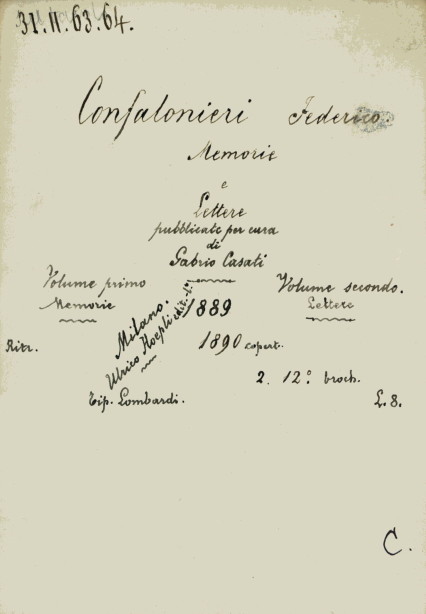 31.II.63.64.
Confalonieri Federico.
Memorie
e
Lettere
pubblicate per cura
di
Gabrio Casati
Volume primo
Memorie
Volume secondo.
Lettere
Milano.
Ulrico Hoepli edit.
1889
1890 copert.
Ritr.
2. 12.° broch.
Tip. Lombardi.
L. 8.
C.